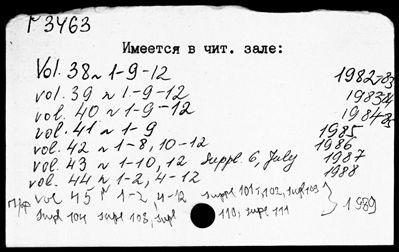 Г 3463
Имеется в чит. зале:
Vol. 38 N 1-9-12 1982-83
vol. 39 N 1-9-12 1983-84
vol. 40 N 1-9-12 1984-85
vol. 41 N 1-9 1985
vol. 42 N 1-8, 10-12 1986
vol. 43 N 1-10, 12 Suppl. 6, July 1987
vol. 44 N 1-2, 4-12 1988
vol 45 N 1-2, 4-12 suppl 101, 102, supl 103 1989
supl 104 supl 108, supl 110, supl 111